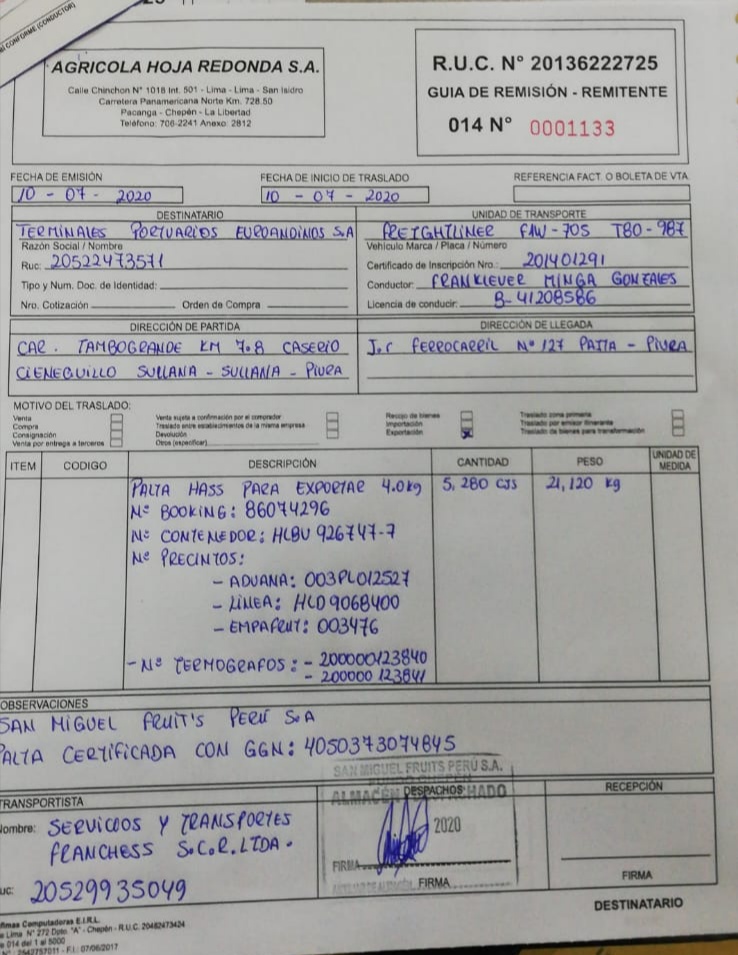 CONFORME (CONDUCTOR)
AGRICOLA HOJA REDONDA S.A.
Calle Chinchon N° 1018 Int. 501 - Lima - Lima - San Isidro
Carretera Panamericana Norte Km. 728.50
Pacanga - Chepén - La Libertad
Teléfono: 706-2241 Anexo: 2812
R.U.C. N° 20136222725
GUIA DE REMISIÓN - REMITENTE
014 N° 0001133
FECHA DE EMISIÓN FECHA DE INICIO DE TRASLADO REFERENCIA FACT. O BOLETA DE VTA.
10 - 07 - 2020 10 - 07 - 2020
DESTINATARIO UNIDAD DE TRANSPORTE
TERMINALES PORTUARIOS EUROANDINOS S.A FREIGHTLINER FAW-705 T80-987
Razón Social / Nombre Vehículo Marca / Placa / Número
Ruc: 20522473571 Certificado de Inscripción Nro.: 201401291
Tipo y Num. Doc. de Identidad: Conductor: FRANKLEVER MINGA GONZALES
Nro. Cotización: Orden de Compra Licencia de conducir: B-41208586
DIRECCIÓN DE PARTIDA DIRECCIÓN DE LLEGADA
CAR. TAMBOGRANDE KM 7.8 CASERIO Jr FERROCARRIL Nº 127 PAITA - PIURA
CIENEGUILLO SULLANA - SULLANA - PIURA
MOTIVO DEL TRASLADO:
Venta Venta sujeta a confirmación por el comprador Recojo de bienes Traslado zona primaria
Compra Traslado entre establecimientos de la misma empresa Importación Traslado por emisor itinerante
Consignación Devolución Exportación X Traslado de bienes para transformación
Venta por entrega a terceros Otros (especificar)
ITEM CODIGO DESCRIPCIÓN CANTIDAD PESO UNIDAD DE MEDIDA
PALTA HASS PARA EXPORTAR 4.0kg 5,280 CJS 21,120 kg
Nº BOOKING: 86074296
Nº CONTENEDOR: HLBU 926747-7
Nº PRECINTOS:
- ADUANA: 003PL012527
- LINEA: HLD9068400
- EMPAFRUT: 003476
- Nº TERMOGRAFOS: - 200000123840
- 200000123841
OBSERVACIONES
SAN MIGUEL FRUIT'S PERÚ S.A
PALTA CERTIFICADA CON GGN: 4050373074845
SAN MIGUEL FRUITS PERÚ S.A.
ALMACÉN DESPACHADO
DESPACHOS
2020
FIRMA
FIRMA
TRANSPORTISTA
Nombre: SERVICIOS Y TRANSPORTES
FRANCHESS S.C.R.LTDA.
RUC: 20529935049
RECEPCIÓN
FIRMA
DESTINATARIO
Computadoras E.I.R.L.
Lima N° 272 Dpto. "A" - Chepén - R.U.C. 20482473424
014 del 1 al 5000
F.I.: 07/06/2017